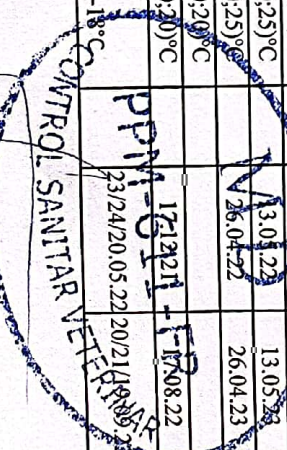 ;25)°C 13.05.22 13.05.23
;25)°C 26.04.22 26.04.23
;20)°C
;20)°C 17.12.21 17.08.22
23/24/20.05.22 20/21/19.09.2
-18°C
PPM-
CONTROL SANITAR VETERINAR